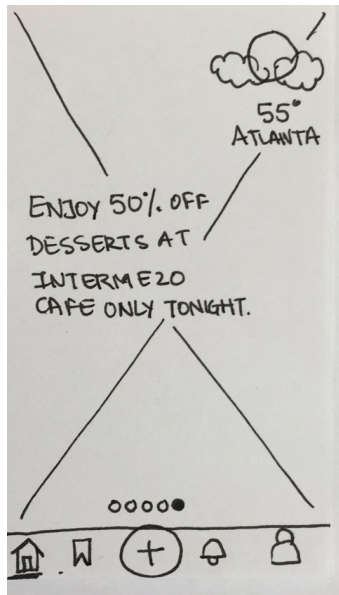 55°
ATLANTA
ENJOY 50% OFF
DESSERTS AT
INTERMEZO
CAFE ONLY TONIGHT.